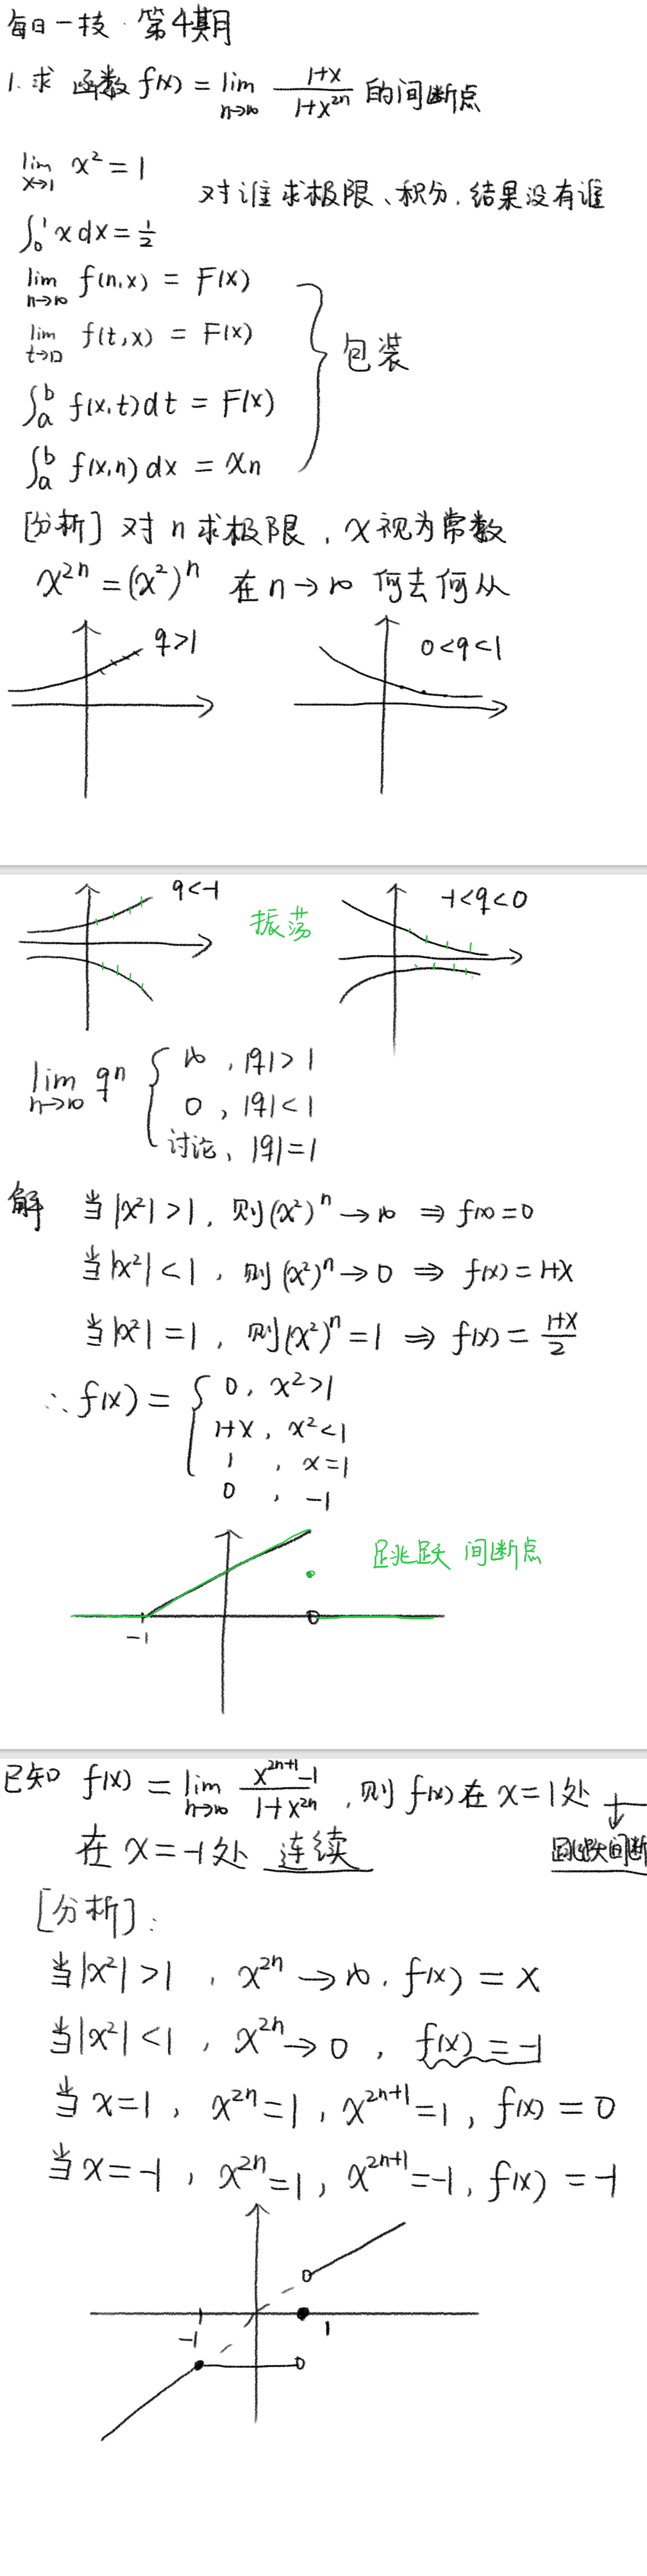 每日一技·第4期
1. 求 函数 f(x) = lim n→∞ (1+x)/(1+x^{2n}) 的间断点
lim x→1 x² = 1
对谁求极限、积分，结果没有谁
∫₀¹ x dx = 1/2
lim n→∞ f(n,x) = F(x)
lim t→□ f(t,x) = F(x)
包装
∫ₐᵇ f(x,t)dt = F(x)
∫ₐᵇ f(x,n)dx = xₙ
[分析] 对 n 求极限，x视为常数
x^{2n} = (x²)ⁿ 在 n→∞ 何去何从
q>1
0<q<1
q<-1
振荡
-1<q<0
lim n→∞ qⁿ { ∞ , |q|>1
0 , |q|<1
讨论、|q|=1
解 当|x²|>1，则(x²)ⁿ→∞ ⇒ f(x)=0
当|x²|<1，则(x²)ⁿ→0 ⇒ f(x)=1+x
当|x²|=1，则(x²)ⁿ=1 ⇒ f(x)=(1+x)/2
∴ f(x) = { 0, x²>1
1+x, x²<1
1, x=1
0, -1
跳跃 间断点
-1
已知 f(x) = lim n→∞ (x^{2n+1}-1)/(1+x^{2n}) ,则 f(x) 在 x=1处
跳跃间断
在 x=-1处 连续
[分析]:
当|x²|>1 , x^{2n}→∞, f(x) = x
当|x²|<1 , x^{2n}→0 , f(x) = -1
当 x=1, x^{2n}=1, x^{2n+1}=1, f(x) = 0
当 x=-1, x^{2n}=1, x^{2n+1}=-1, f(x) = -1
-1
1